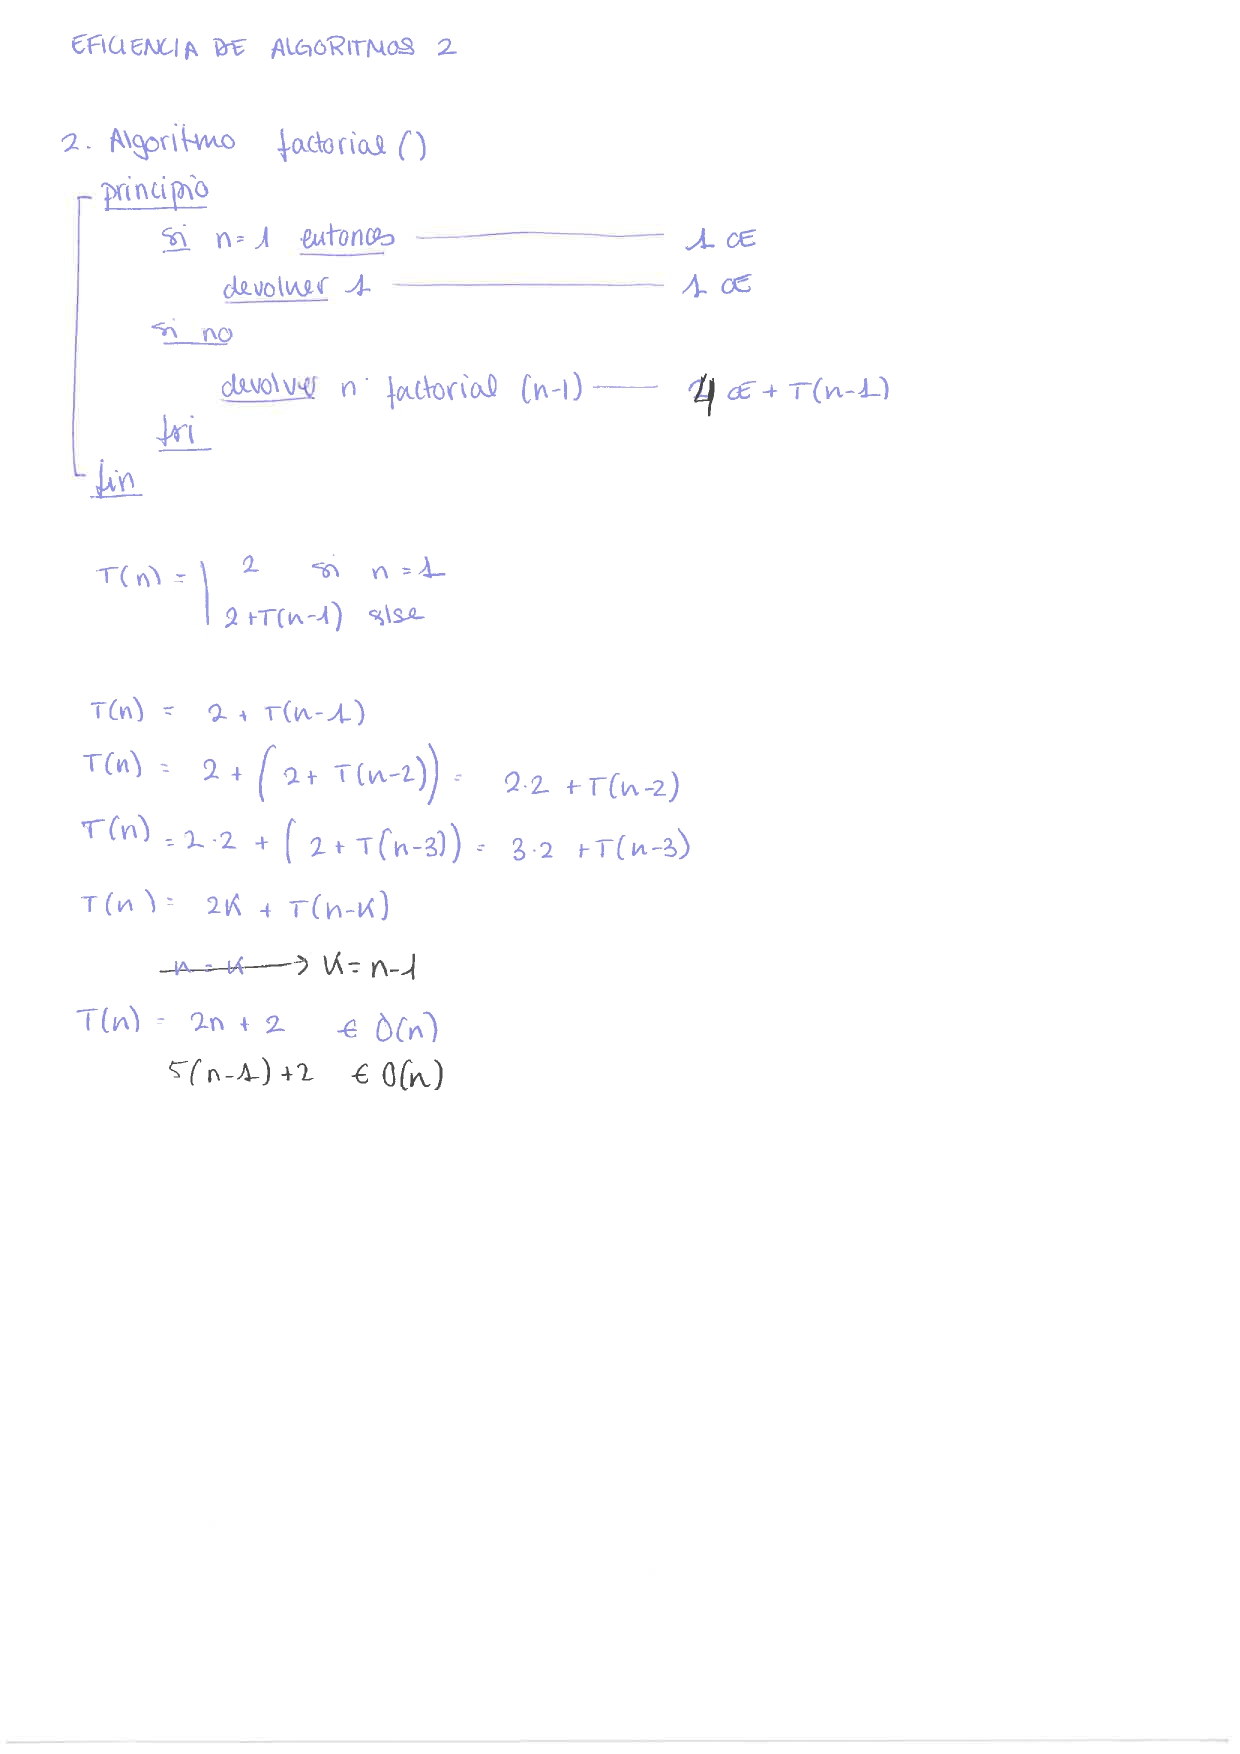 EFICIENCIA DE ALGORITMOS 2
2. Algoritmo factorial ()
principio
si n=1 entonces 1 OE
devolver 1 1 OE
si no
devolver n · factorial (n-1) 4 OE + T(n-1)
fsi
fin
T(n) = 2 si n = 1
2+T(n-1) else
T(n) = 2 + T(n-1)
T(n) = 2 + (2 + T(n-2)) = 2·2 + T(n-2)
T(n) = 2·2 + (2 + T(n-3)) = 3·2 + T(n-3)
T(n) = 2K + T(n-K)
n = K → K = n-1
T(n) = 2n + 2 ∈ O(n)
5(n-1)+2 ∈ O(n)